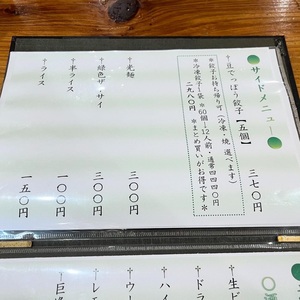 ●サイドメニュー●
†豆でっぽう餃子【五個】 三七〇円
＊餃子お持ち帰り可（冷凍・焼 選べます）
＊冷凍餃子1袋 ＊60個＝12人前 通常四四四〇円
二九八〇円 ＊まとめ買いがお得です＊
†光麺 三〇〇円
†緑色ザーサイ 三〇〇円
†半ライス 一〇〇円
†ライス 一五〇円
○酒
†生ビ
†ドラ
†ハイ
†ウー
†レモ
†巨峰